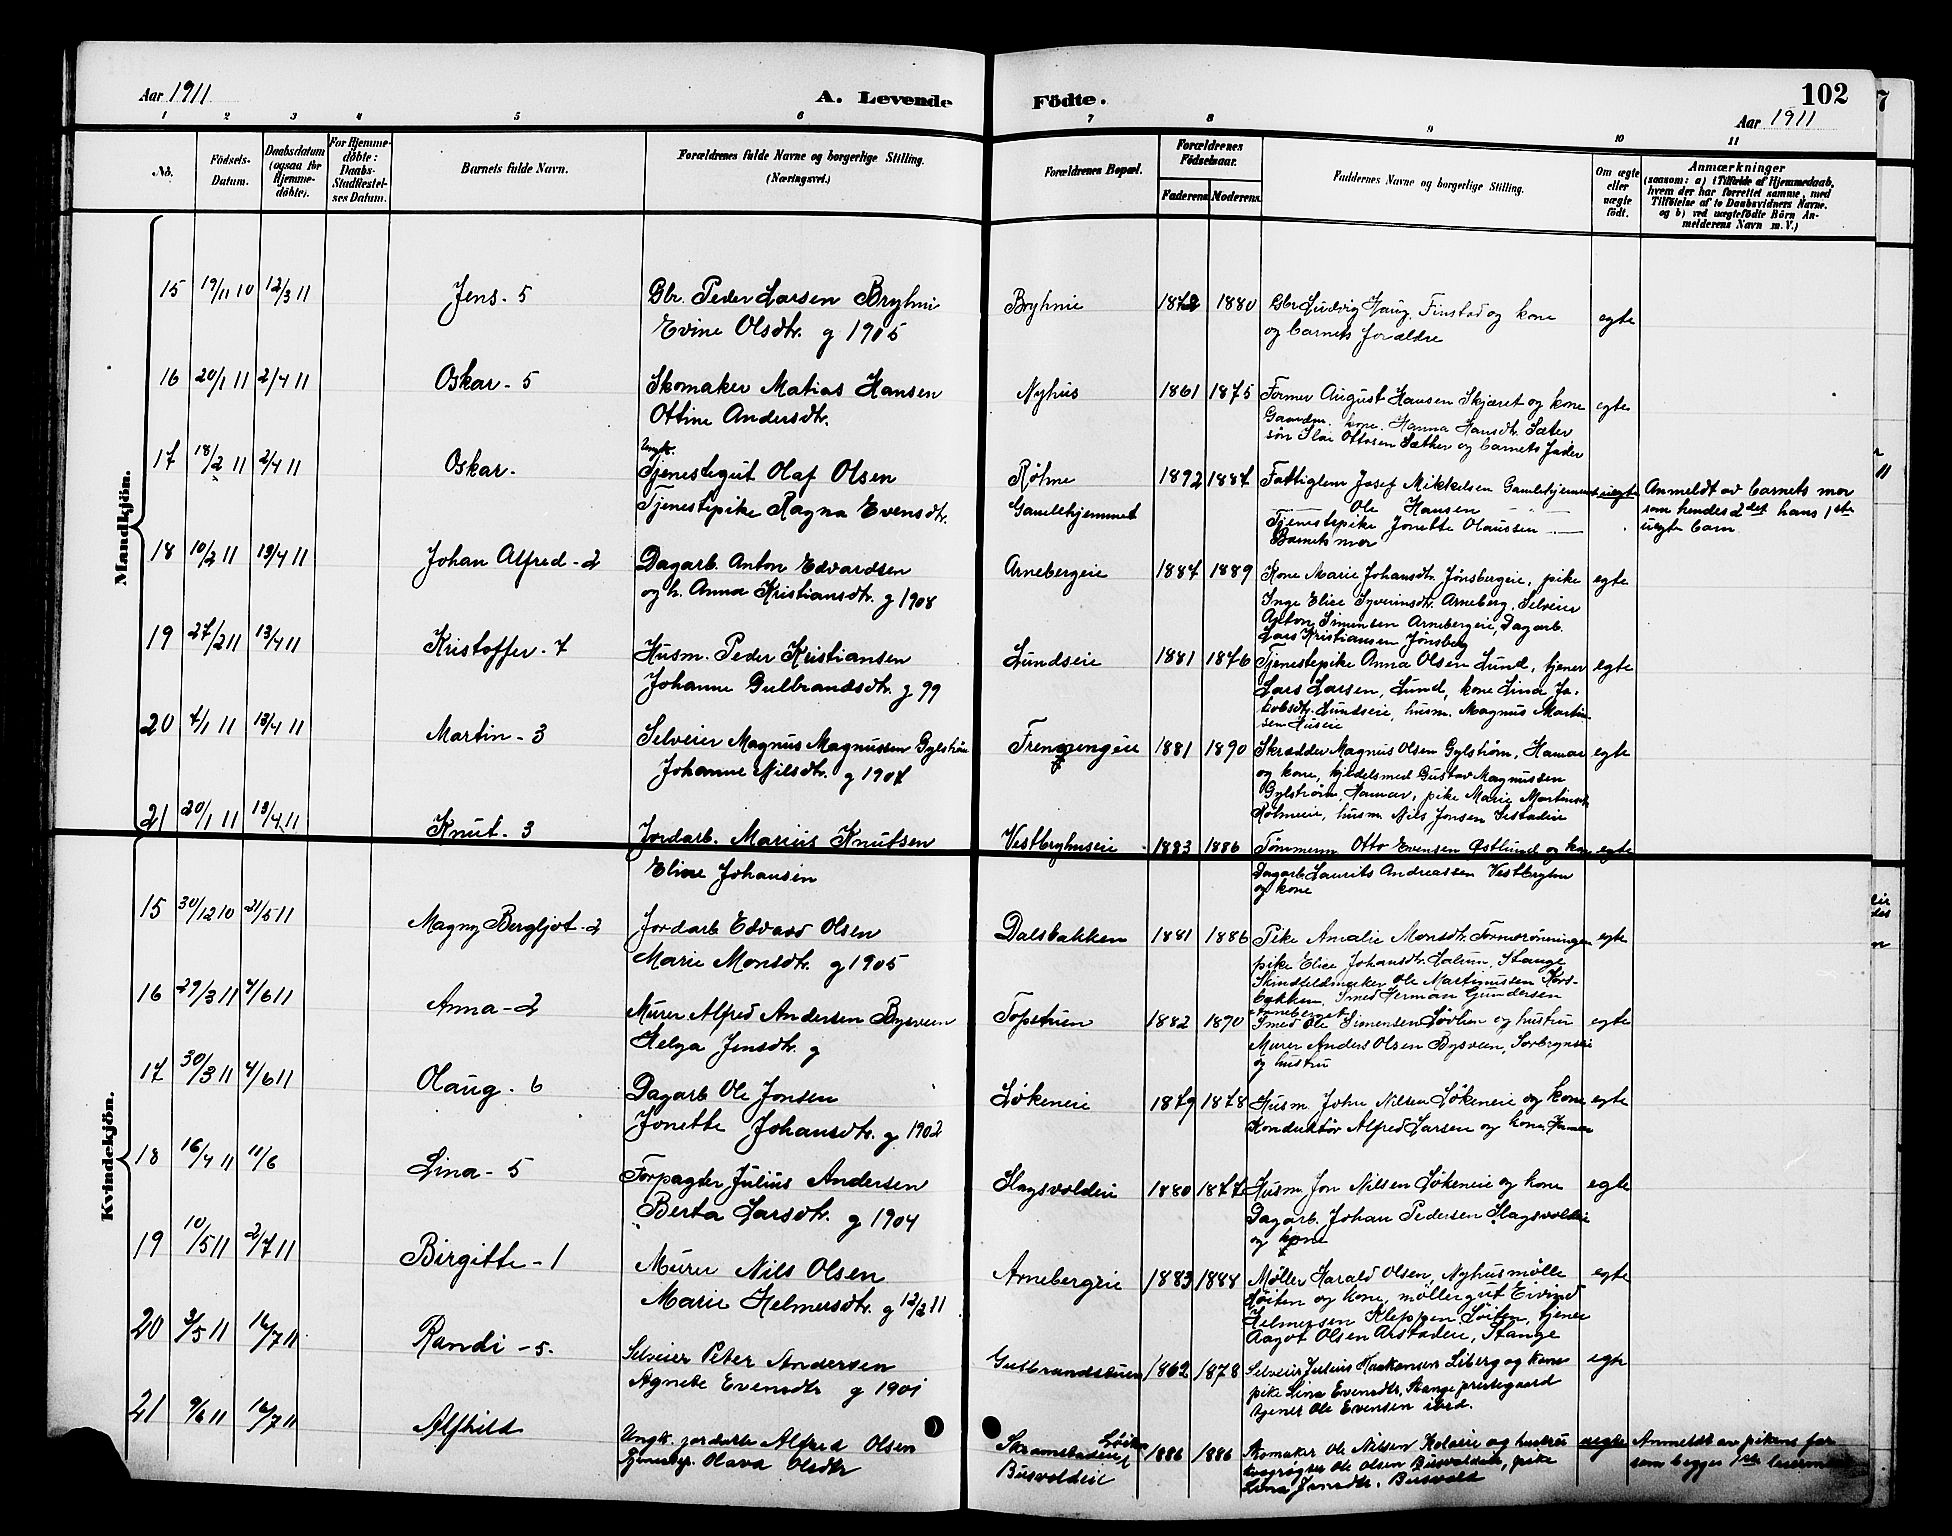 Aar 1911
A. Levende Födte.
102
Aar 1911
1 2 3 4 5 6 7 8 9 10 11
No.
Födsels-
Datum.
Daabsdatum
(ogsaa for
Hjemme-
döbte).
For Hjemme-
döbte:
Daabs-
Stadfæstel-
ses Datum.
Barnets fulde Navn.
Forældrenes fulde Navne og borgerlige Stilling.
(Næringsvei.)
Forældrenes Bopæl.
Forældrenes
Födselsaar.
Faderens.
Moderens.
Faddernes Navne og borgerlige Stilling.
Om ægte
eller
uægte
födt.
Anmærkninger
(saasom: a) i Tilfælde af Hjemmedaab,
hvem der har forrettet samme, med
Tilföielse af to Daabsvidners Navne.
og b) ved uægtefödte Börn An-
melderens Navn m. V.)
Mandkjön.
15 19/11 10 12/3 11 Jens - 5 Gbr. Peder Larsen Bryhni Bryhnie 1872 1880 Gbr Ludvig Haug, Finstad og kone egte
Evine Olsdtr. g 1905 og barnets forældre
16 20/1 11 2/4 11 Oskar - 5 Skomaker Matias Hansen Nyhus 1861 1875 Former August Hansen Skjæret og kone egte
Ottine Andersdtr. Gaardm. kone Hanna Hansdtr. Sæter
søn Ottosen Sæther og barnets fader
17 18/2 11 2/4 11 Oskar. Ungk. Tjenestegut Olaf Olsen Røhne 1892 1887 Fattiglem Josef Mikkelsen Gamlehjemmet uegte Anmeldt av barnets mor
Tjenestepike Ragna Evensdtr. Gamlehjemmet Ole Hansen som hendes 2det hans 1ste
Tjenestepike Jonette Olaussen uegte barn
Barnets mor
18 10/2 11 13/4 11 Johan Alfred - 2 Dagarb. Anton Edvardsen Arnebergeie 1887 1889 Kone Marie Johansdtr. Jønsbergeie, pike egte
og h. Anna Kristiansdtr. g 1908 Inga Elise Syverinsdtr. Arneberg, Selveier
Anton Simensen Arnebergeie, Dagarb.
Lars Kristiansen Jønsberg
19 27/2 11 13/4 11 Kristoffer - 7 Husm. Peder Kristiansen Lundseie 1881 1876 Tjenestepike Anna Olsen Lund, tjener egte
Johanne Gulbrandsdtr. g 99 Lars Larsen, Lund, kone Lina Ja-
kobsdtr. Lundseie, husm. Magnus Martin-
sen Huseie
20 4/1 11 13/4 11 Martin - 3 Selveier Magnus Magnussen Gylstrøm 1881 1890 Skrædder Magnus Olsen Gylstrøm, Hamar egte
Johanne Nilsdtr. g 1907 og kone, hjulelsmed Gustav Magnussen
Gylstrøm, Hamar, pike Marie Martinsdtr.
Røhneeie, husm Nils Jonsen
21 20/1 11 13/4 11 Knut - 3 Jordarb. Marius Knutsen Vestbryhnseie 1883 1886 Tømmerm Otto Evensen Østlund og kone egte
Eline Johansen Dagarb. Laurits Andreassen Vestbryhn
og kone
Kvindekjön.
15 30/12 10 21/5 11 Magny Bergljot - 2 Jordarb Edvard Olsen Dalsbakken 1881 1886 Pike Amalie Monsdtr. egte
Marie Monsdtr. g 1905 pike Elise Johansdtr. Lalum, Stange
Skindfeldmaker Ole Martinussen Kors-
bakken, Smed Herman Gundersen
Arneberget
16 29/3 11 4/6 11 Anna - 2 Murer Alfred Andersen Bysveen Topstuen 1882 1890 Smed Ole Simensen Løvlien og hustru egte
Helga Jensdtr. g Murer Anders Olsen Bysveen,
og hustru
17 30/3 11 4/6 11 Olaug - 6 Dagarb Ole Jonsen Løkeneie 1879 1878 Husm. John Nilsen Løkeneie og kone egte
Jonette Johansdtr. g 1902 Konduktør Alfred Larsen og kone, Hamar
18 16/4 11 11/6 Lina - 5 Forpagter Julius Andersen Slagsvoldeie 1880 1877 Husm. Jon Nilsen Løkeneie og kone egte
Berta Larsdtr. g 1904 Dagarb. Johan Pedersen Slagsvoldeie
og kone
19 10/5 11 2/7 11 Birgitte - 1 Murer Nils Olsen Arnebergeie 1883 1888 Møller Harald Olsen, Nyhusmølle egte
Marie Helmersdtr. g 12/2 11 Løiten og kone, møllergut Eivind
Helmersen Kleppen Løiten, tjener
Aagot Olsen Arstadeie, Stange
20 3/5 11 16/7 11 Randi - 5. Selveier Peter Andersen Gulbrandstuen 1862 1878 Selveier Julius Haakonsen Liberg og kone egte
Agnete Evensdtr g 1901 pike Lina Evensdtr, Stange prestegaard
tjener Ole Evensen ibid.
21 9/6 11 16/7 11 Alfhild Ungk. jordarb Alfred Olsen Skramstadeie Løiten 1886 1886 Skomaker Ole Nilsen Kolseie og hustru uegte Anmeldt av pikens far
Tjenestep. Olava Olsdtr Busvoldeie Ole Olsen Busvoldeie, pike som begges 1ste
Lina Jensdtr. Busvold